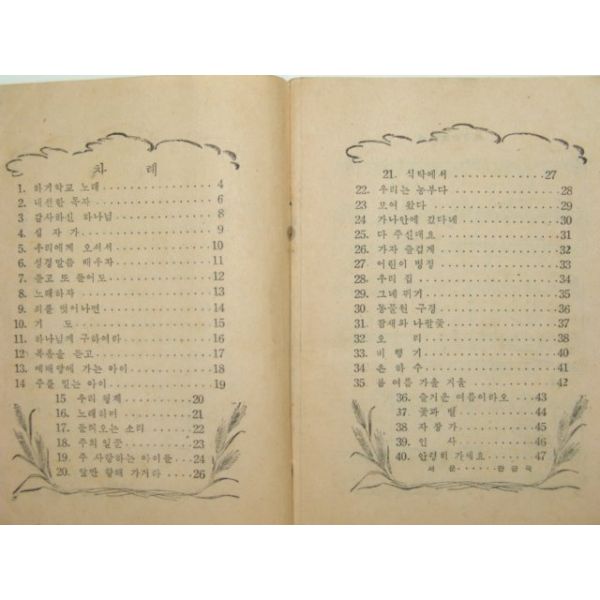 차 례
1. 하기학교 노래 ............ 4
2. 내선한 목자 ............ 6
3 감사하신 하나님 ............ 8
4. 십 자 가 ............ 9
5. 우리에게 오셔서 ............ 10
6. 성경말씀 배우자 ............ 11
7. 듣고 또 들어도 ............ 12
8. 노래하자 ............ 13
9. 죄를 벗어나면 ............ 14
10. 기 도 ............ 15
11. 하나님께 구하여라 ............ 16
12 복음을 듣고 ............ 17
13. 예배당에 가는 아이 ............ 18
14 주를 믿는 아이 ............ 19
15 우리 형제 ............ 20
16. 노래하며 ............ 21
17. 들려오는 소리 ............ 22
18. 주의 일꾼 ............ 23
19. 주 사랑하는 아이들 .... 24
20. 앞만 향해 가거라 .... 26
21. 식탁에서 ............ 27
22. 우리는 농부다 ............ 28
23 모여 왔다 ............ 29
24. 가나안에 갔다네 ............ 30
25. 다 주신대요 ............ 31
26. 가자 즐겁게 ............ 32
27. 어린이 병정 ............ 33
28. 우리 집 ............ 34
29. 그네 뛰기 ............ 35
30. 동물원 구경 ............ 36
31. 참새와 나팔꽃 ............ 37
32. 오 리 ............ 38
33. 비 행 기 ............ 40
34 은 하 수 ............ 41
35 봄 여름 가을 겨울 ............ 42
36. 즐거운 여름이라오 .... 43
37. 꽃과 벌 ............ 44
38 자 장 가 ............ 45
39. 인 사 ............ 46
40. 안녕히 가세요 ........ 47
서 문 ......